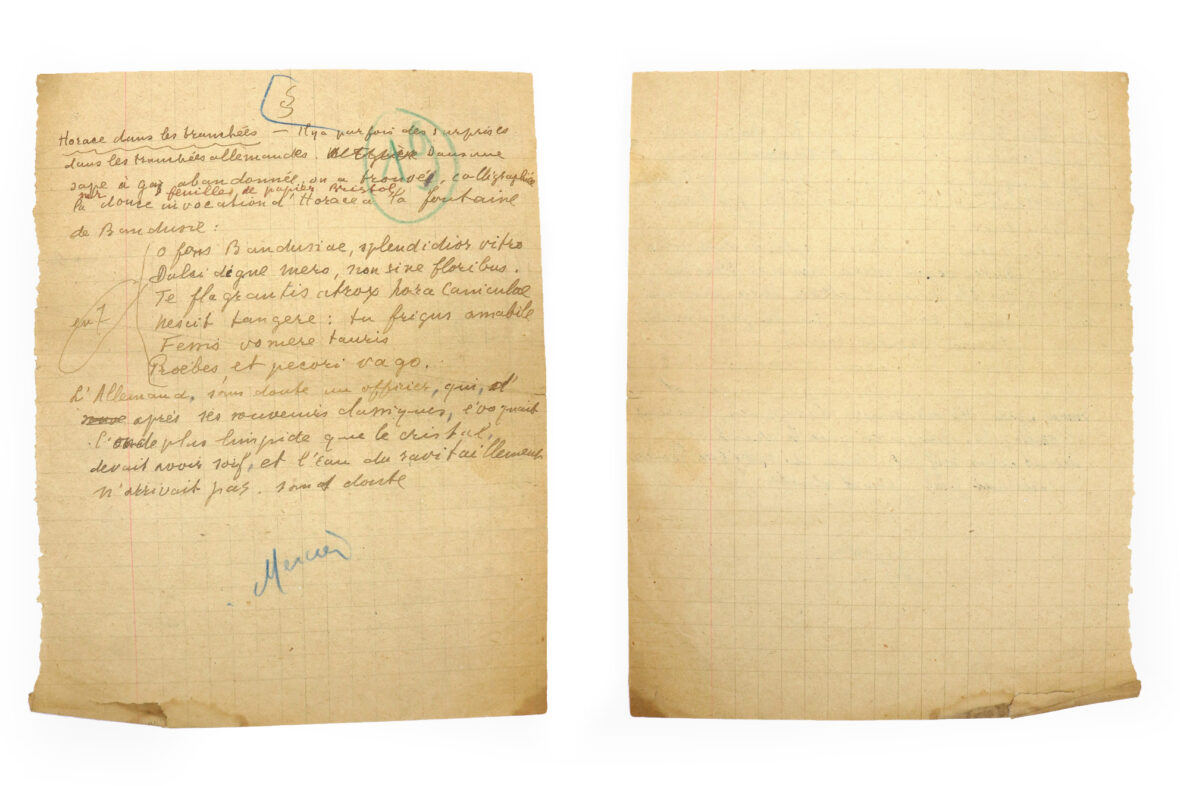 §
Horace dans les tranchées — Il y a parfois des surprises
dans les tranchées allemandes. Dans une
sape à gaz abandonnée, on a trouvé, calligraphiée
sur feuilles de papier Bristol,
la douce invocation d'Horace à la fontaine
de Bandusie :
O fons Bandusiae, splendidior vitro
Dulci digne mero, non sine floribus.
Te flagrantis atrox hora Caniculae
nescit tangere : tu frigus amabile
Fessis vomere tauris
Proebes et pecori vago.
L'Allemand, sans doute un officier, qui, d'
après ses souvenirs classiques, évoquait
l'onde plus limpide que le cristal,
devait avoir soif, et l'eau du ravitaillement
n'arrivait pas. sans doute
Mercier